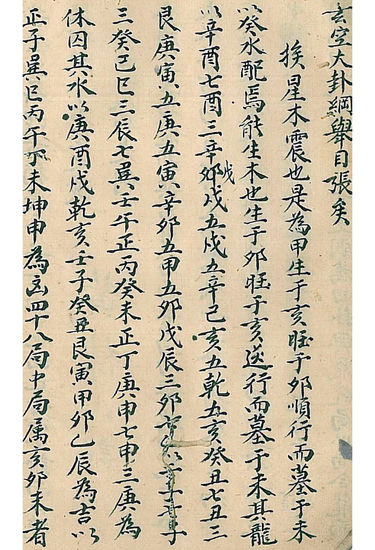 玄空大卦綱舉目張矣
挨星木震也是為甲生于亥旺于卯順行而墓于未
以癸水配焉能生木也生于卯旺于亥逆行而墓于未其龍
以辛酉七酉三辛卯戌五戌五辛己亥五乾五亥癸丑七丑三
艮庚寅五庚五寅辛卯五甲五卯戊辰三卯
三癸己巳三辰七巽壬午正丙癸未正丁庚申七申三庚為
休囚其水以庚酉戌乾亥壬子癸丑艮寅甲卯乙辰為吉以
正子巽巳丙午丁未坤申為凶四十八局中局属亥卯未者